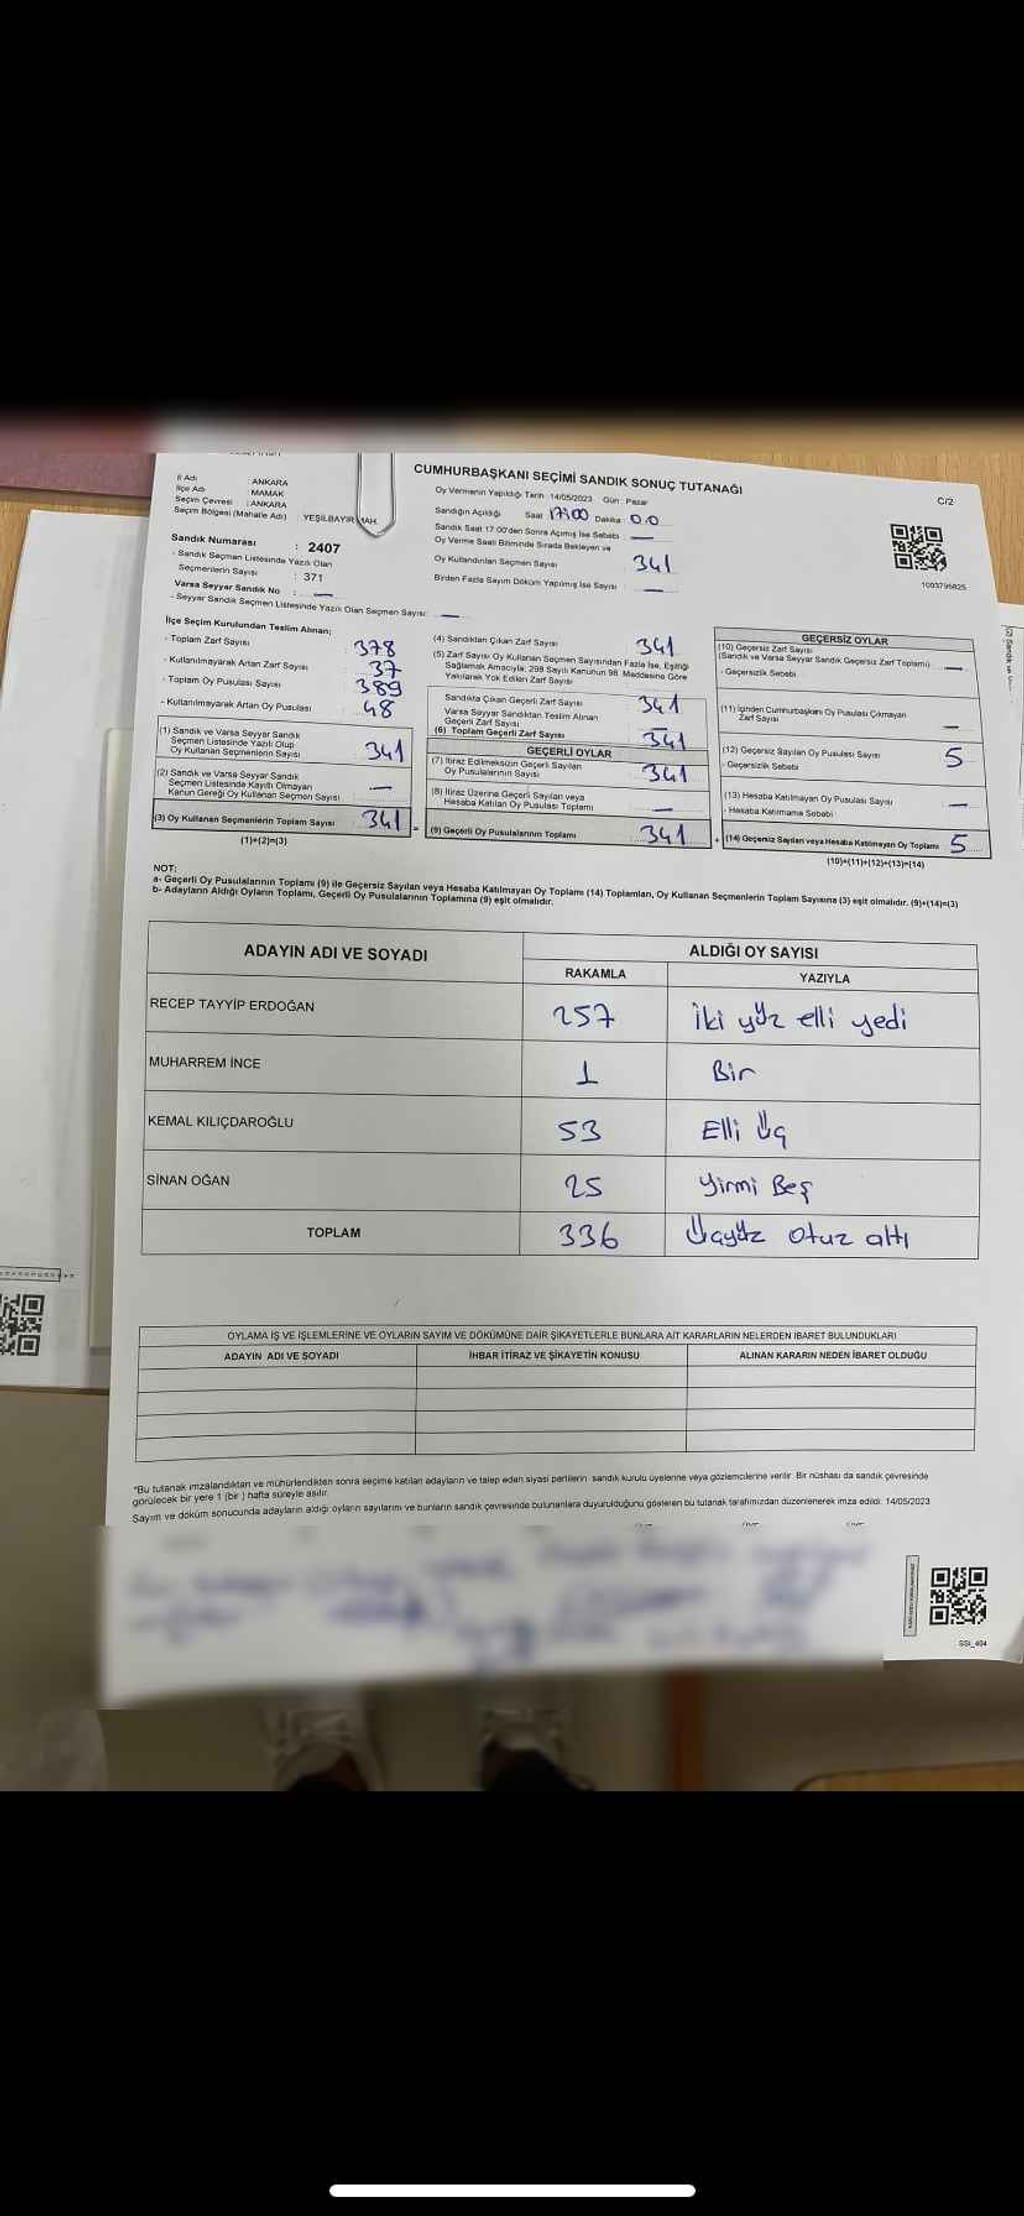 CUMHURBAŞKANI SEÇİMİ SANDIK SONUÇ TUTANAĞI
C/2
İl Adı : ANKARA
İlçe Adı : MAMAK
Seçim Çevresi : ANKARA
Seçim Bölgesi (Mahalle Adı) : YEŞİLBAYIR MAH.
Sandık Numarası : 2407
- Sandık Seçmen Listesinde Yazılı Olan
Seçmenlerin Sayısı : 371
Varsa Seyyar Sandık No : —
- Seyyar Sandık Seçmen Listesinde Yazılı Olan Seçmen Sayısı: —
Oy Vermenin Yapıldığı Tarih 14/05/2023 Gün : Pazar
Sandığın Açıldığı Saat 17:00 Dakika : 00
Sandık Saat 17.00'den Sonra Açılmış İse Sebebi : —
Oy Verme Saati Bitiminde Sırada Bekleyen ve
Oy Kullandırılan Seçmen Sayısı 341
Birden Fazla Sayım Döküm Yapılmış İse Sayısı —
1003795825
İlçe Seçim Kurulundan Teslim Alınan;
- Toplam Zarf Sayısı 378
- Kullanılmayarak Artan Zarf Sayısı 37
- Toplam Oy Pusulası Sayısı 389
- Kullanılmayarak Artan Oy Pusulası 48
(1) Sandık ve Varsa Seyyar Sandık
Seçmen Listesinde Yazılı Olup
Oy Kullanan Seçmenlerin Sayısı 341
(2) Sandık ve Varsa Seyyar Sandık
Seçmen Listesinde Kayıtlı Olmayan
Kanun Gereği Oy Kullanan Seçmen Sayısı —
(3) Oy Kullanan Seçmenlerin Toplam Sayısı 341
(1)+(2)=(3)
=
(4) Sandıktan Çıkan Zarf Sayısı 341
(5) Zarf Sayısı Oy Kullanan Seçmen Sayısından Fazla İse, Eşitliği
Sağlamak Amacıyla; 298 Sayılı Kanunun 98. Maddesine Göre
Yakılarak Yok Edilen Zarf Sayısı
Sandıkta Çıkan Geçerli Zarf Sayısı 341
Varsa Seyyar Sandıktan Teslim Alınan
Geçerli Zarf Sayısı —
(6) Toplam Geçerli Zarf Sayısı 341
GEÇERLİ OYLAR
(7) İtiraz Edilmeksizin Geçerli Sayılan
Oy Pusulalarının Sayısı 341
(8) İtiraz Üzerine Geçerli Sayılan veya
Hesaba Katılan Oy Pusulası Toplamı —
(9) Geçerli Oy Pusulalarının Toplamı 341
+
GEÇERSİZ OYLAR
(10) Geçersiz Zarf Sayısı
(Sandık ve Varsa Seyyar Sandık Geçersiz Zarf Toplamı) —
- Geçersizlik Sebebi
(11) İçinden Cumhurbaşkanı Oy Pusulası Çıkmayan
Zarf Sayısı —
(12) Geçersiz Sayılan Oy Pusulası Sayısı 5
- Geçersizlik Sebebi
(13) Hesaba Katılmayan Oy Pusulası Sayısı —
- Hesaba Katılmama Sebebi
(14) Geçersiz Sayılan veya Hesaba Katılmayan Oy Toplamı 5
(10)+(11)+(12)+(13)=(14)
NOT:
a- Geçerli Oy Pusulalarının Toplamı (9) ile Geçersiz Sayılan veya Hesaba Katılmayan Oy Toplamı (14) Toplamları, Oy Kullanan Seçmenlerin Toplam Sayısına (3) eşit olmalıdır. (9)+(14)=(3)
b- Adayların Aldığı Oyların Toplamı, Geçerli Oy Pusulalarının Toplamına (9) eşit olmalıdır.
ADAYIN ADI VE SOYADI ALDIĞI OY SAYISI
RAKAMLA YAZIYLA
RECEP TAYYİP ERDOĞAN 257 iki yüz elli yedi
MUHARREM İNCE 1 Bir
KEMAL KILIÇDAROĞLU 53 Elli üç
SİNAN OĞAN 25 yirmi Beş
TOPLAM 336 Üçyüz otuz altı
OYLAMA İŞ VE İŞLEMLERİNE VE OYLARIN SAYIM VE DÖKÜMÜNE DAİR ŞİKAYETLERLE BUNLARA AİT KARARLARIN NELERDEN İBARET BULUNDUKLARI
ADAYIN ADI VE SOYADI İHBAR İTİRAZ VE ŞİKAYETİN KONUSU ALINAN KARARIN NEDEN İBARET OLDUĞU
"Bu tutanak imzalandıktan ve mühürlendikten sonra seçime katılan adayların ve talep eden siyasi partilerin sandık kurulu üyelerine veya gözlemcilerine verilir. Bir nüshası da sandık çevresinde
görülecek bir yere 1 (bir) hafta süreyle asılır.
Sayım ve döküm sonucunda adayların aldığı oyların sayılarını ve bunların sandık çevresinde bulunanlara duyurulduğunu gösteren bu tutanak tarafımızdan düzenlenerek imza edildi. 14/05/2023
SSI_404